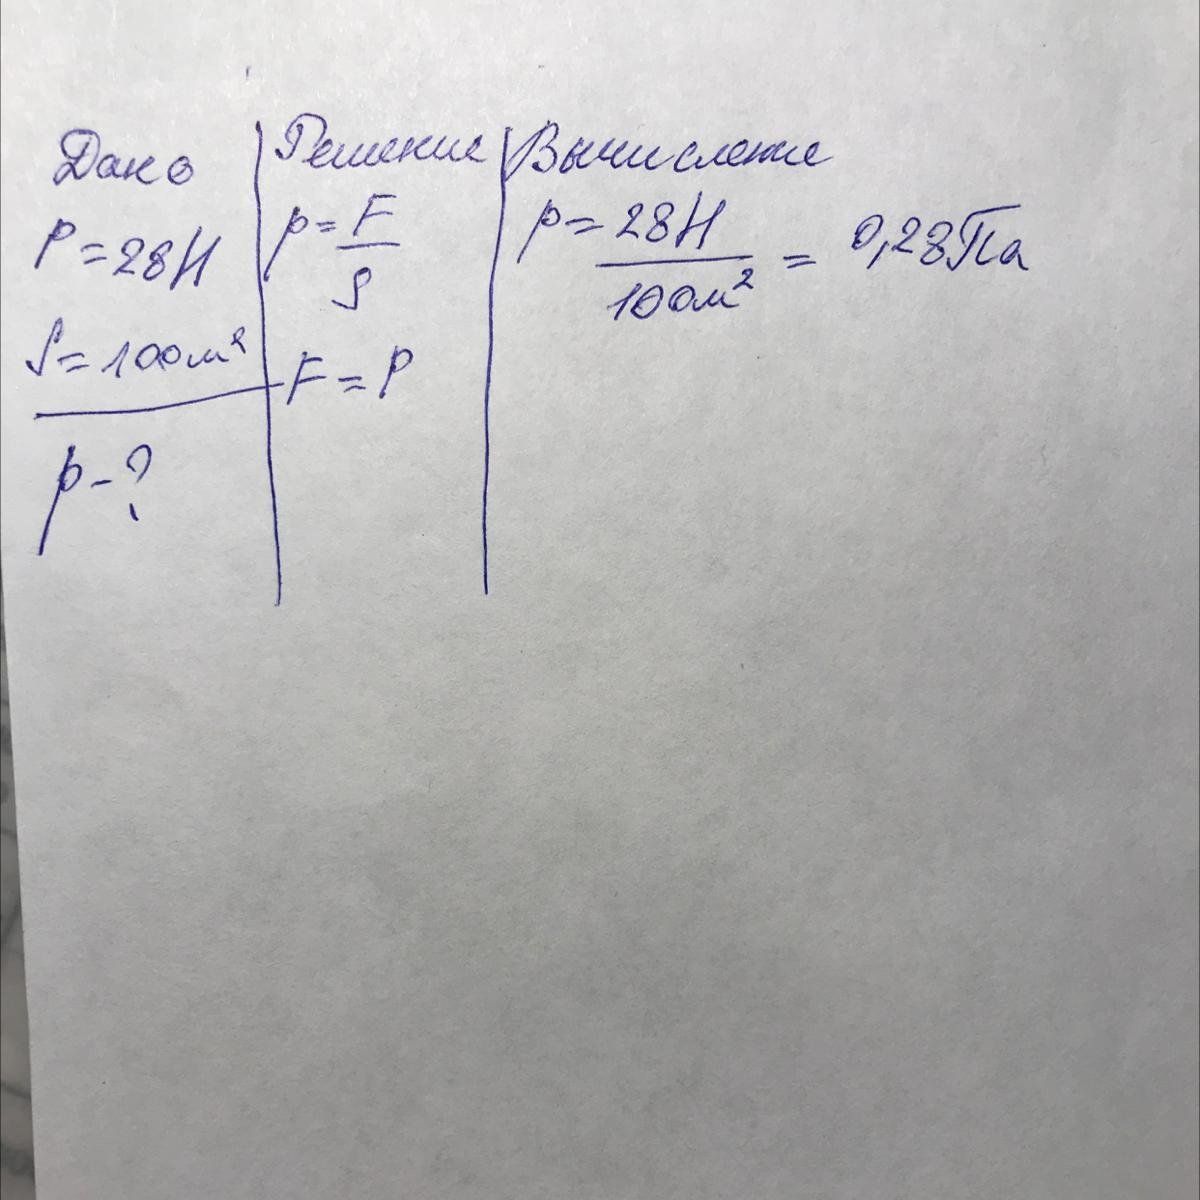 Дано
P = 28Н
S = 100м²
p - ?
Решение
p = F/S
F = P
Вычисление
p = 28Н/100м² = 0,28Па